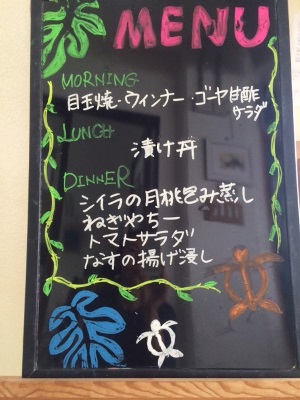 MENU
MORNING
目玉焼・ウィンナー・ゴーヤ甘酢
サラダ
LUNCH
漬け丼
DINNER
シイラの月桃包み蒸し
ねぎやちー
トマトサラダ
なすの揚げ浸し